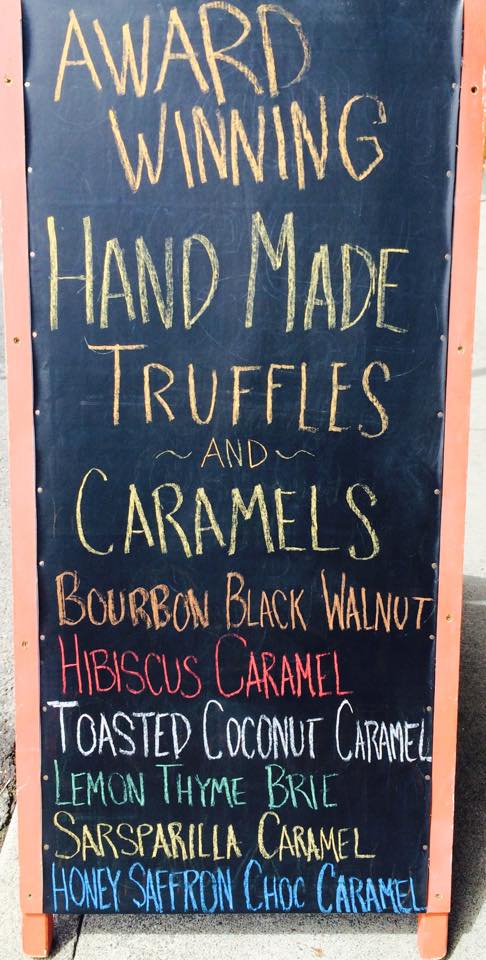 AWARD
WINNING
HAND MADE
TRUFFLES
~AND~
CARAMELS
BOURBON BLACK WALNUT
HIBISCUS CARAMEL
TOASTED COCONUT CARAMEL
LEMON THYME BRIE
SARSPARILLA CARAMEL
HONEY SAFFRON CHOC CARAMEL